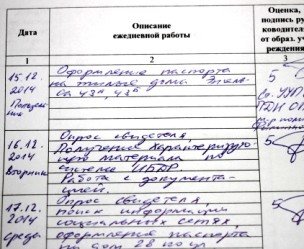 Дата
Описание
ежедневной работы
Оценка,
подпись ру
ководител
от образ. уч
реждения
1
2
3
15.12.
2014
Оформление паспорта
на жилые дома
43а, 43б
5
16.12.
2014
Вторник
Опрос свидетеля
Получение характеризую
щего материала по
системе ИБДР
Работа с документа-
цией.
5
17.12.
2014
среда
Опрос свидетеля,
поиск информации
социальных сетях
оформление паспорта
на дом 28 по ул
5